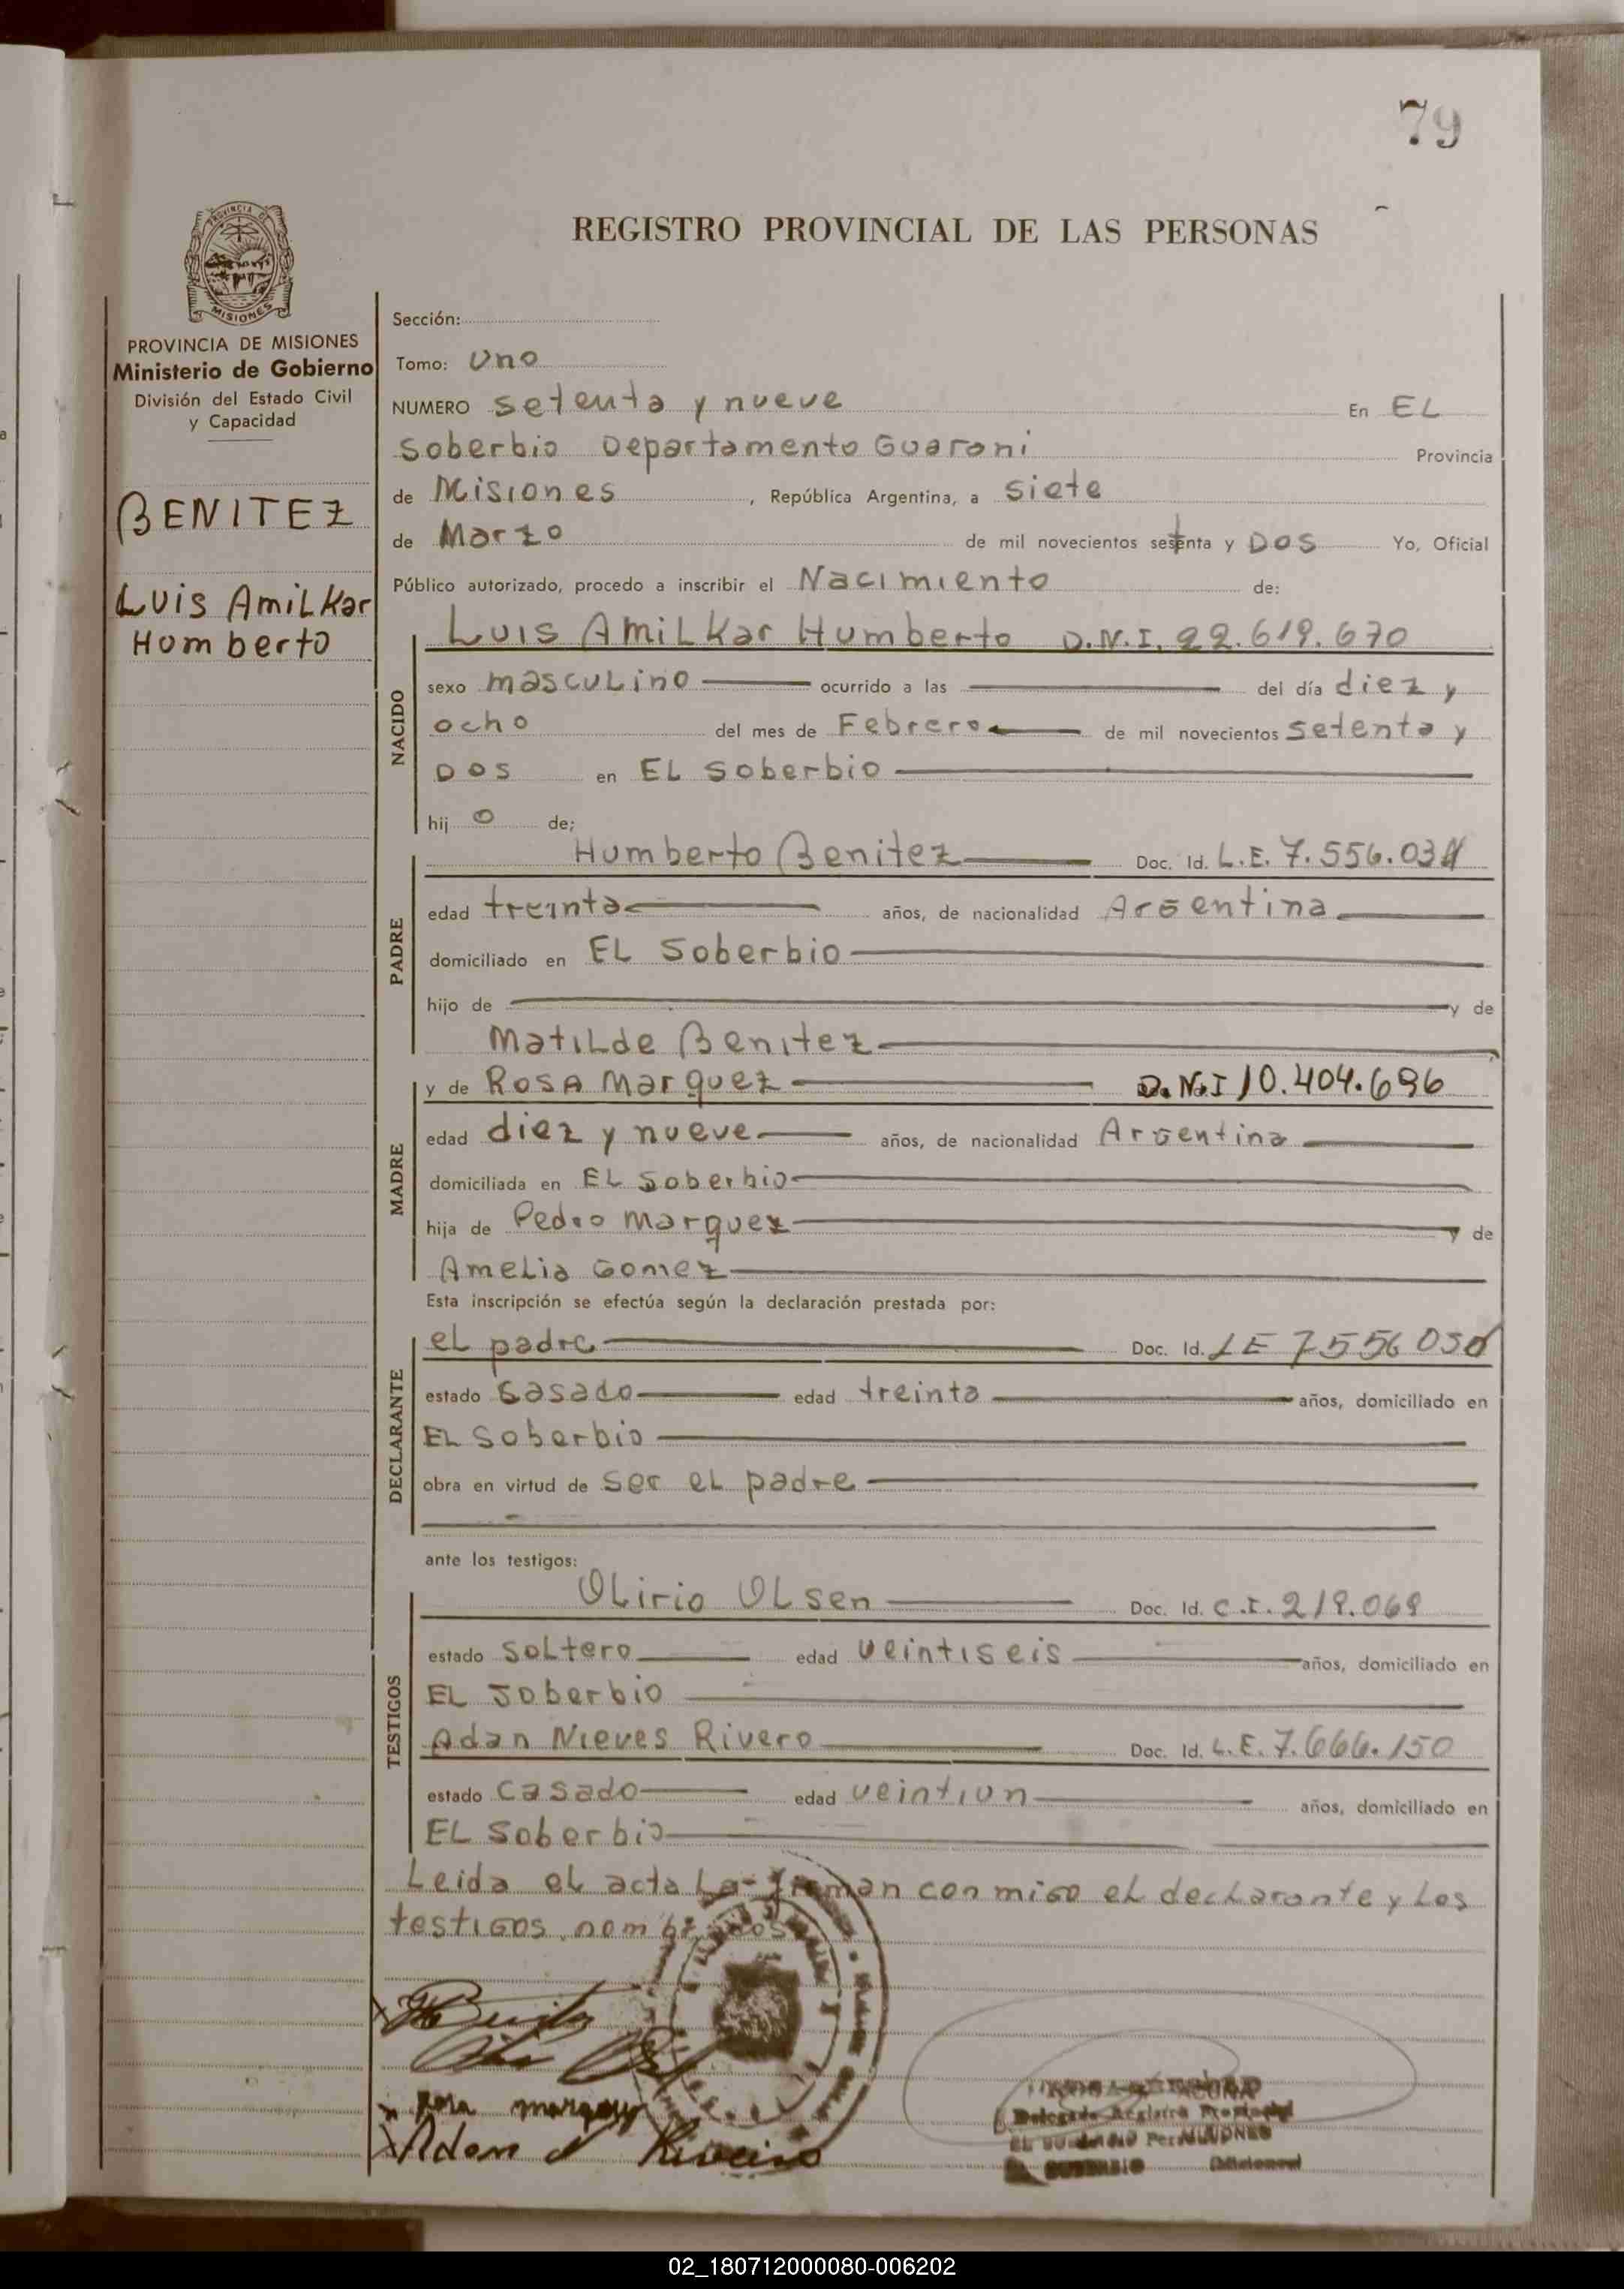 79
PROVINCIA DE
MISIONES
REGISTRO PROVINCIAL DE LAS PERSONAS
PROVINCIA DE MISIONES
Ministerio de Gobierno
División del Estado Civil
y Capacidad
BENITEZ
Luis Amilkar
Humberto
Sección:
Tomo: Uno
NUMERO setenta y nueve En EL
Soberbio Departamento Guarani Provincia
de Misiones, República Argentina, a siete
de Marzo de mil novecientos setenta y DOS Yo, Oficial
Público autorizado, procedo a inscribir el Nacimiento de:
Luis Amilkar Humberto D.N.I. 22.619.670
NACIDO
sexo masculino ocurrido a las del día diez y
ocho del mes de Febrero de mil novecientos setenta y
DOS en EL Soberbio
hij o de;
PADRE
Humberto Benitez Doc. Id. L.E. 7.556.03
edad treinta años, de nacionalidad Argentina
domiciliado en EL Soberbio
hijo de y de
Matilde Benitez
MADRE
y de ROSA Marquez D.N.I 10.404.696
edad diez y nueve años, de nacionalidad Argentina
domiciliada en EL Soberbio
hija de Pedro Marquez y de
Amelia Gomez
Esta inscripción se efectúa según la declaración prestada por:
DECLARANTE
el padre Doc. Id. LE 7556 03
estado Casado edad treinta años, domiciliado en
EL Soberbio
obra en virtud de ser el padre
ante los testigos:
TESTIGOS
Olirio Olsen Doc. Id. C.I. 219.069
estado Soltero edad veintiseis años, domiciliado en
EL Soberbio
Adan Nieves Rivero Doc. Id. L.E. 7.666.150
estado Casado edad veintiun años, domiciliado en
EL Soberbio
Leida el acta la firman con migo el declarante y los
testigos nombrados
H Benitez
Rosa marquez
Adan N Riveiro
ACUÑA
Delegado Registro Provincial
(Misiones)
02_180712000080-006202